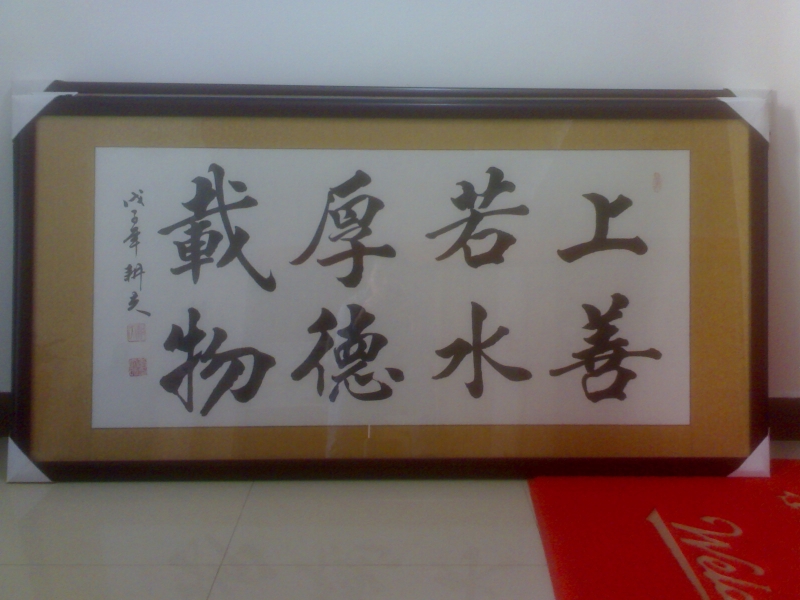 上善
若水
厚德
載物
戊子年 耕夫
Welco